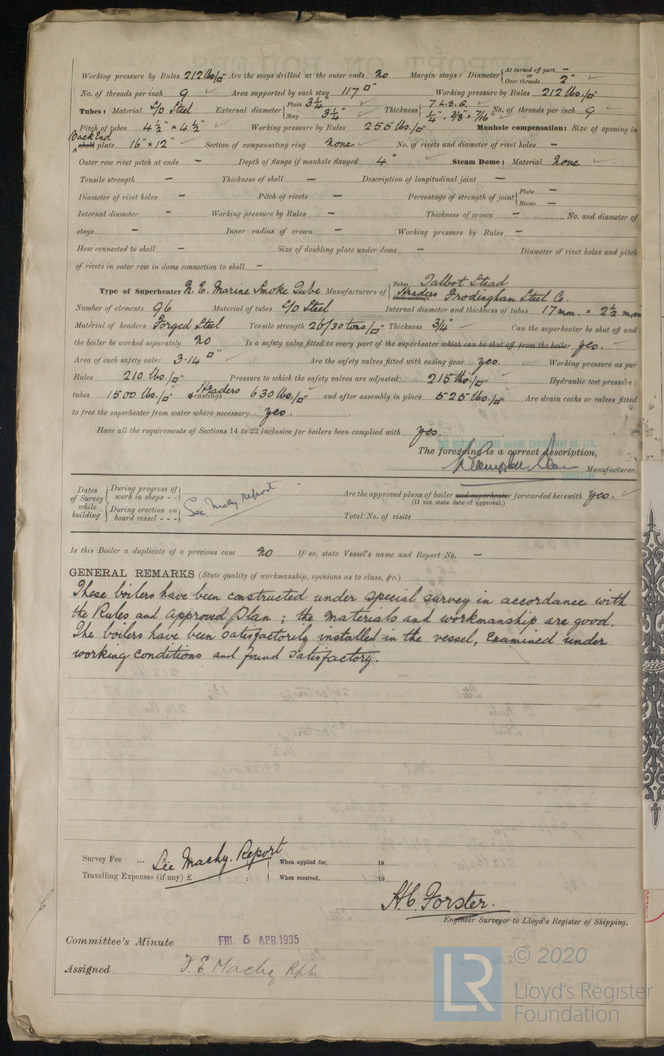 Working pressure by Rules 212 lbs/□" Are the stays drilled at the outer ends no Margin stays: Diameter { At turned off part, — Over threads 2"
No. of threads per inch 9 Area supported by each stay 117 □" Working pressure by Rules 212 lbs/□"
Tubes: Material S/D Steel External diameter { Plain 3¼" Stay 3¼" Thickness { 7 L.S.G. ¼", 3/8" & 7/16" No. of threads per inch 9
Pitch of tubes 4½" × 4½" Working pressure by Rules 255 lbs/□" Manhole compensation: Size of opening in
Back End shell plate 16" × 12" Section of compensating ring none No. of rivets and diameter of rivet holes —
Outer row rivet pitch at ends — Depth of flange if manhole flanged 4" Steam Dome: Material none
Tensile strength — Thickness of shell — Description of longitudinal joint —
Diameter of rivet holes — Pitch of rivets — Percentage of strength of joint { Plate — Rivets —
Internal diameter — Working pressure by Rules — Thickness of crown — No. and diameter of
stays — Inner radius of crown — Working pressure by Rules —
How connected to shell — Size of doubling plate under dome — Diameter of rivet holes and pitch
of rivets in outer row in dome connection to shell —
Type of Superheater N. E. Marine Smoke Tube Manufacturers of { Tubes Talbot Stead Headers Frodingham Steel Co.
Number of elements 96 Material of tubes S/D Steel Internal diameter and thickness of tubes 17 mm. × 2½ mm
Material of headers Forged Steel Tensile strength 26/30 tons/□" Thickness ¾" Can the superheater be shut off and
the boiler be worked separately no Is a safety valve fitted to every part of the superheater which can be shut off from the boiler yes.
Area of each safety valve 3.14 □" Are the safety valves fitted with easing gear yes Working pressure as per
Rules 210 lbs/□" Pressure to which the safety valves are adjusted 215 lbs/□" Hydraulic test pressure:
tubes 1500 lbs/□" Headers castings 630 lbs/□" and after assembly in place 525 lbs/□" Are drain cocks or valves fitted
to free the superheater from water where necessary yes.
Have all the requirements of Sections 14 to 22 inclusive for boilers been complied with yes.
The foregoing is a correct description,
Manufacturer.
Dates of Survey while building { During progress of work in shops - - During erection on board vessel - - - } See Machy Report
Are the approved plans of boiler and superheater forwarded herewith yes.
(If not state date of approval.)
Total No. of visits
Is this Boiler a duplicate of a previous case no If so, state Vessel's name and Report No. —
GENERAL REMARKS (State quality of workmanship, opinions as to class, &c.)
These boilers have been constructed under special survey in accordance with
the Rules and approved Plan; the materials and workmanship are good.
The boilers have been satisfactorily installed in the vessel, examined under
working conditions and found satisfactory.
Survey Fee ... See Machy. Report When applied for, 19
Travelling Expenses (if any) £ : : When received, 19
H.C. Forster.
Engineer Surveyor to Lloyd's Register of Shipping.
Committee's Minute FRI. 5 APR 1935
Assigned F. E. Machy Rpt.
LR © 2020
Lloyd's Register
Foundation